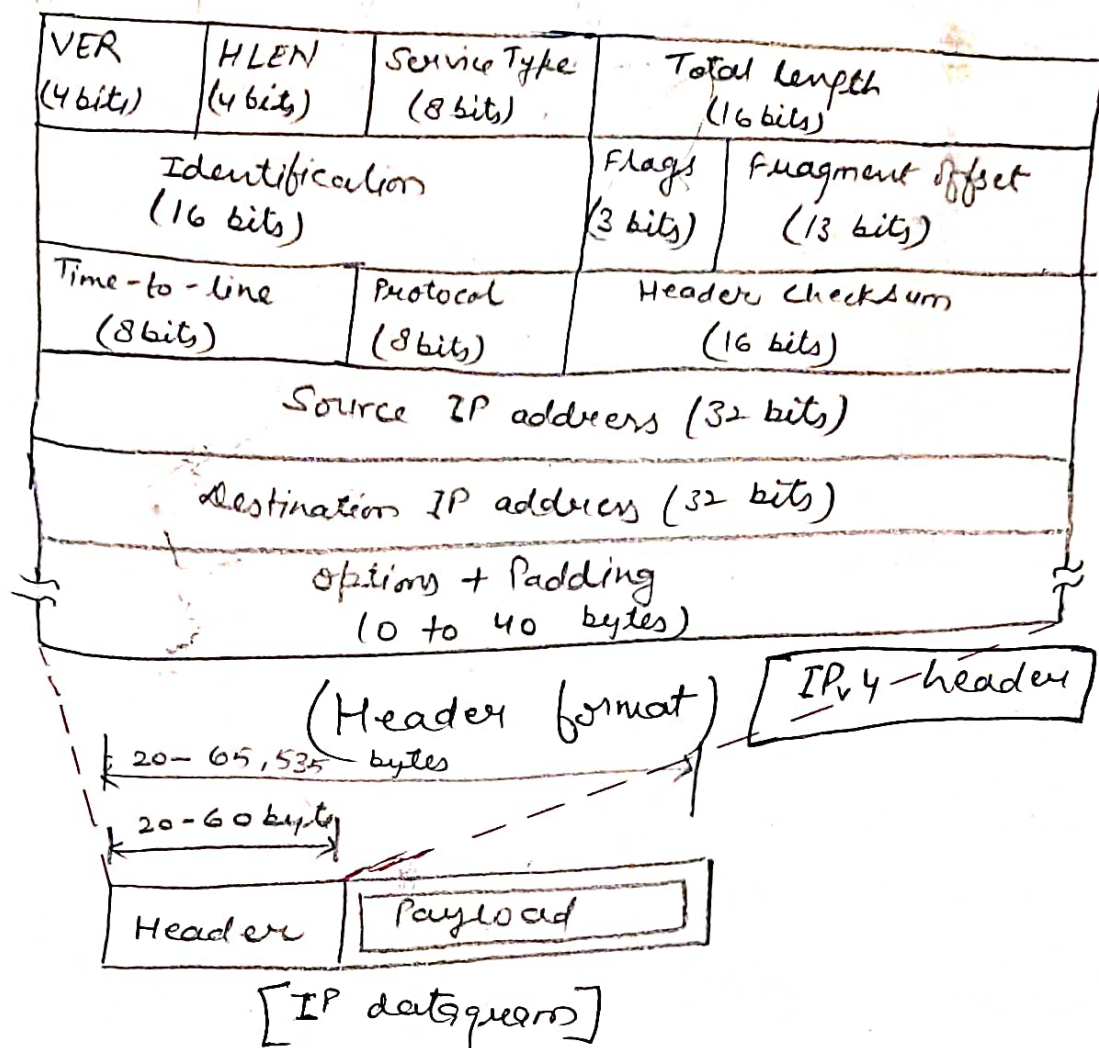 VER
(4 bits)
HLEN
(4 bits)
Service Type
(8 bits)
Total Length
(16 bits)
Identification
(16 bits)
Flags
(3 bits)
Fragment offset
(13 bits)
Time-to-line
(8 bits)
Protocol
(8 bits)
Header Checksum
(16 bits)
Source IP address (32 bits)
Destination IP address (32 bits)
Options + Padding
(0 to 40 bytes)
(Header format)
IPv4-header
20-65,535 bytes
20-60 byts
Header
Payload
[IP datagram]